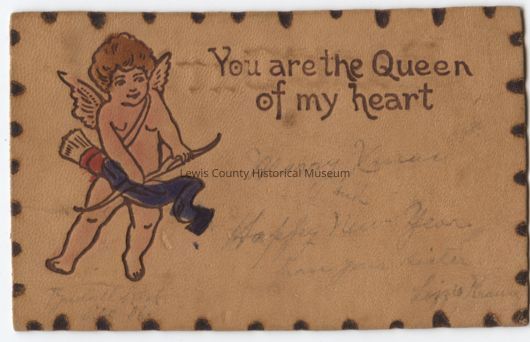 You are the Queen
of my heart
Merry Xmas
Lewis County Historical Museum
Happy New Year
from your sister
Lizzie